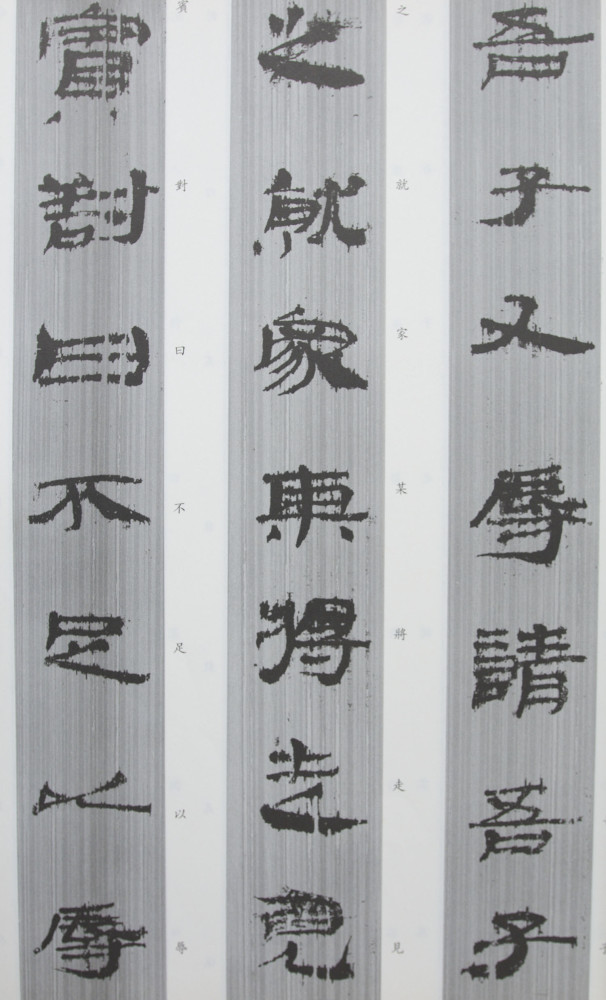 吾子又辱請吾子
之就家某將走見
之就家某將走見
賓對曰不足以辱
賓對曰不足以辱